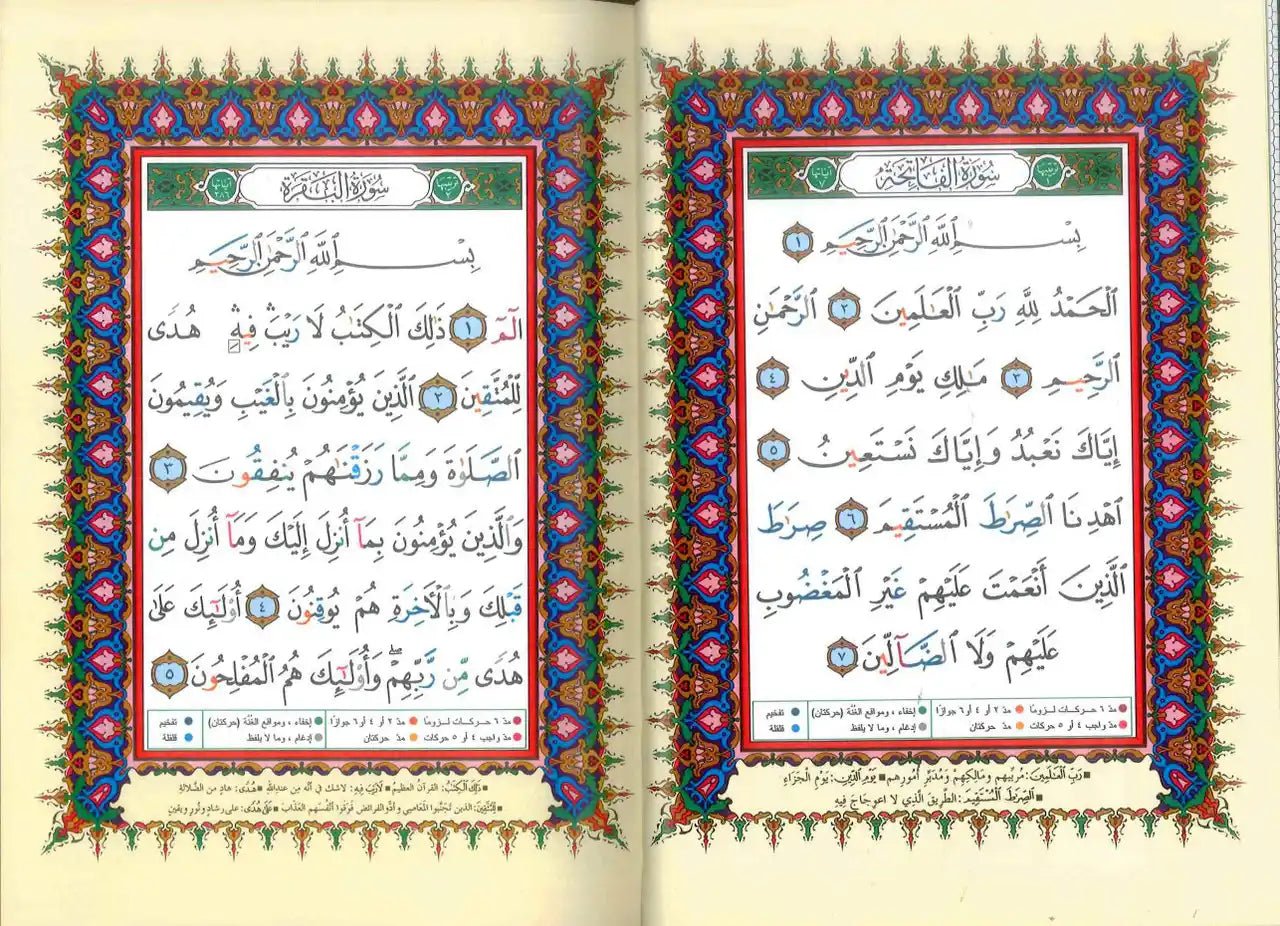 ترتيبها ١
سُورَةُ الْفَاتِحَةِ
آياتها ٧
بِسْمِ ٱللَّهِ ٱلرَّحْمَٰنِ ٱلرَّحِيمِ ١
ٱلْحَمْدُ لِلَّهِ رَبِّ ٱلْعَٰلَمِينَ ٢ ٱلرَّحْمَٰنِ
ٱلرَّحِيمِ ٣ مَٰلِكِ يَوْمِ ٱلدِّينِ ٤
إِيَّاكَ نَعْبُدُ وَإِيَّاكَ نَسْتَعِينُ ٥
ٱهْدِنَا ٱلصِّرَٰطَ ٱلْمُسْتَقِيمَ ٦ صِرَٰطَ
ٱلَّذِينَ أَنْعَمْتَ عَلَيْهِمْ غَيْرِ ٱلْمَغْضُوبِ
عَلَيْهِمْ وَلَا ٱلضَّآلِّينَ ٧
مدّ ٦ حركات لزومًا مدّ ٢ أو ٤ أو ٦ جوازًا إخفاء، ومواقع الغُنَّة (حركتان) تفخيم
مدّ واجب ٤ أو ٥ حركات مدّ حركتان إدغام، وما لا يلفظ قلقلة
رَبِّ الْعَالَمِينَ: مُرَبِّيهم ومَالِكِهم ومُدَبِّرِ أمُورِهم يَوْمِ الدِّينِ: يَوْمِ الجَزَاء
الصِّرَاطَ الْمُسْتَقِيمَ: الطَّرِيقَ الَّذِي لا اعوجَاجَ فِيهِ
ترتيبها ٢
سُورَةُ الْبَقَرَةِ
آياتها ٢٨٦
بِسْمِ ٱللَّهِ ٱلرَّحْمَٰنِ ٱلرَّحِيمِ
الٓمٓ ١ ذَٰلِكَ ٱلْكِتَٰبُ لَا رَيْبَۛ فِيهِۛ هُدًى
لِّلْمُتَّقِينَ ٢ ٱلَّذِينَ يُؤْمِنُونَ بِٱلْغَيْبِ وَيُقِيمُونَ
ٱلصَّلَوٰةَ وَمِمَّا رَزَقْنَٰهُمْ يُنفِقُونَ ٣
وَٱلَّذِينَ يُؤْمِنُونَ بِمَآ أُنزِلَ إِلَيْكَ وَمَآ أُنزِلَ مِن
قَبْلِكَ وَبِٱلْءَاخِرَةِ هُمْ يُوقِنُونَ ٤ أُو۟لَٰٓئِكَ عَلَىٰ
هُدًى مِّن رَّبِّهِمْۖ وَأُو۟لَٰٓئِكَ هُمُ ٱلْمُفْلِحُونَ ٥
مدّ ٦ حركات لزومًا مدّ ٢ أو ٤ أو ٦ جوازًا إخفاء، ومواقع الغُنَّة (حركتان) تفخيم
مدّ واجب ٤ أو ٥ حركات مدّ حركتان إدغام، وما لا يلفظ قلقلة
ذَلِكَ الْكِتَابُ: القرآنُ العظيمُ لَا رَيْبَ فِيهِ: لا شك في أنّه من عند الله هُدًى: هادٍ من الضلالة
لِلْمُتَّقِينَ: الذين تجنَّبوا المعَاصي وأدَّوا الفرائضَ فَوَقَوا أنفُسَهم العذَابَ عَلَى هُدًى: على رشادٍ ونُورٍ ويقينٍ